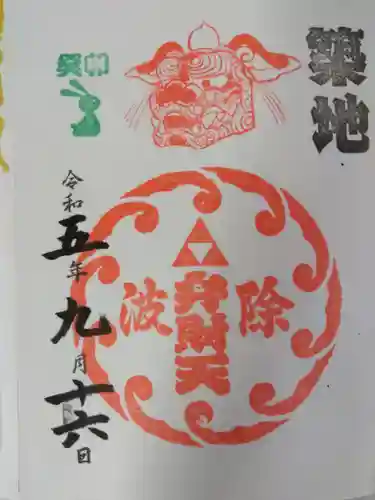 築地
癸卯
除
弁財天
波
令和
五年
九月
十六日